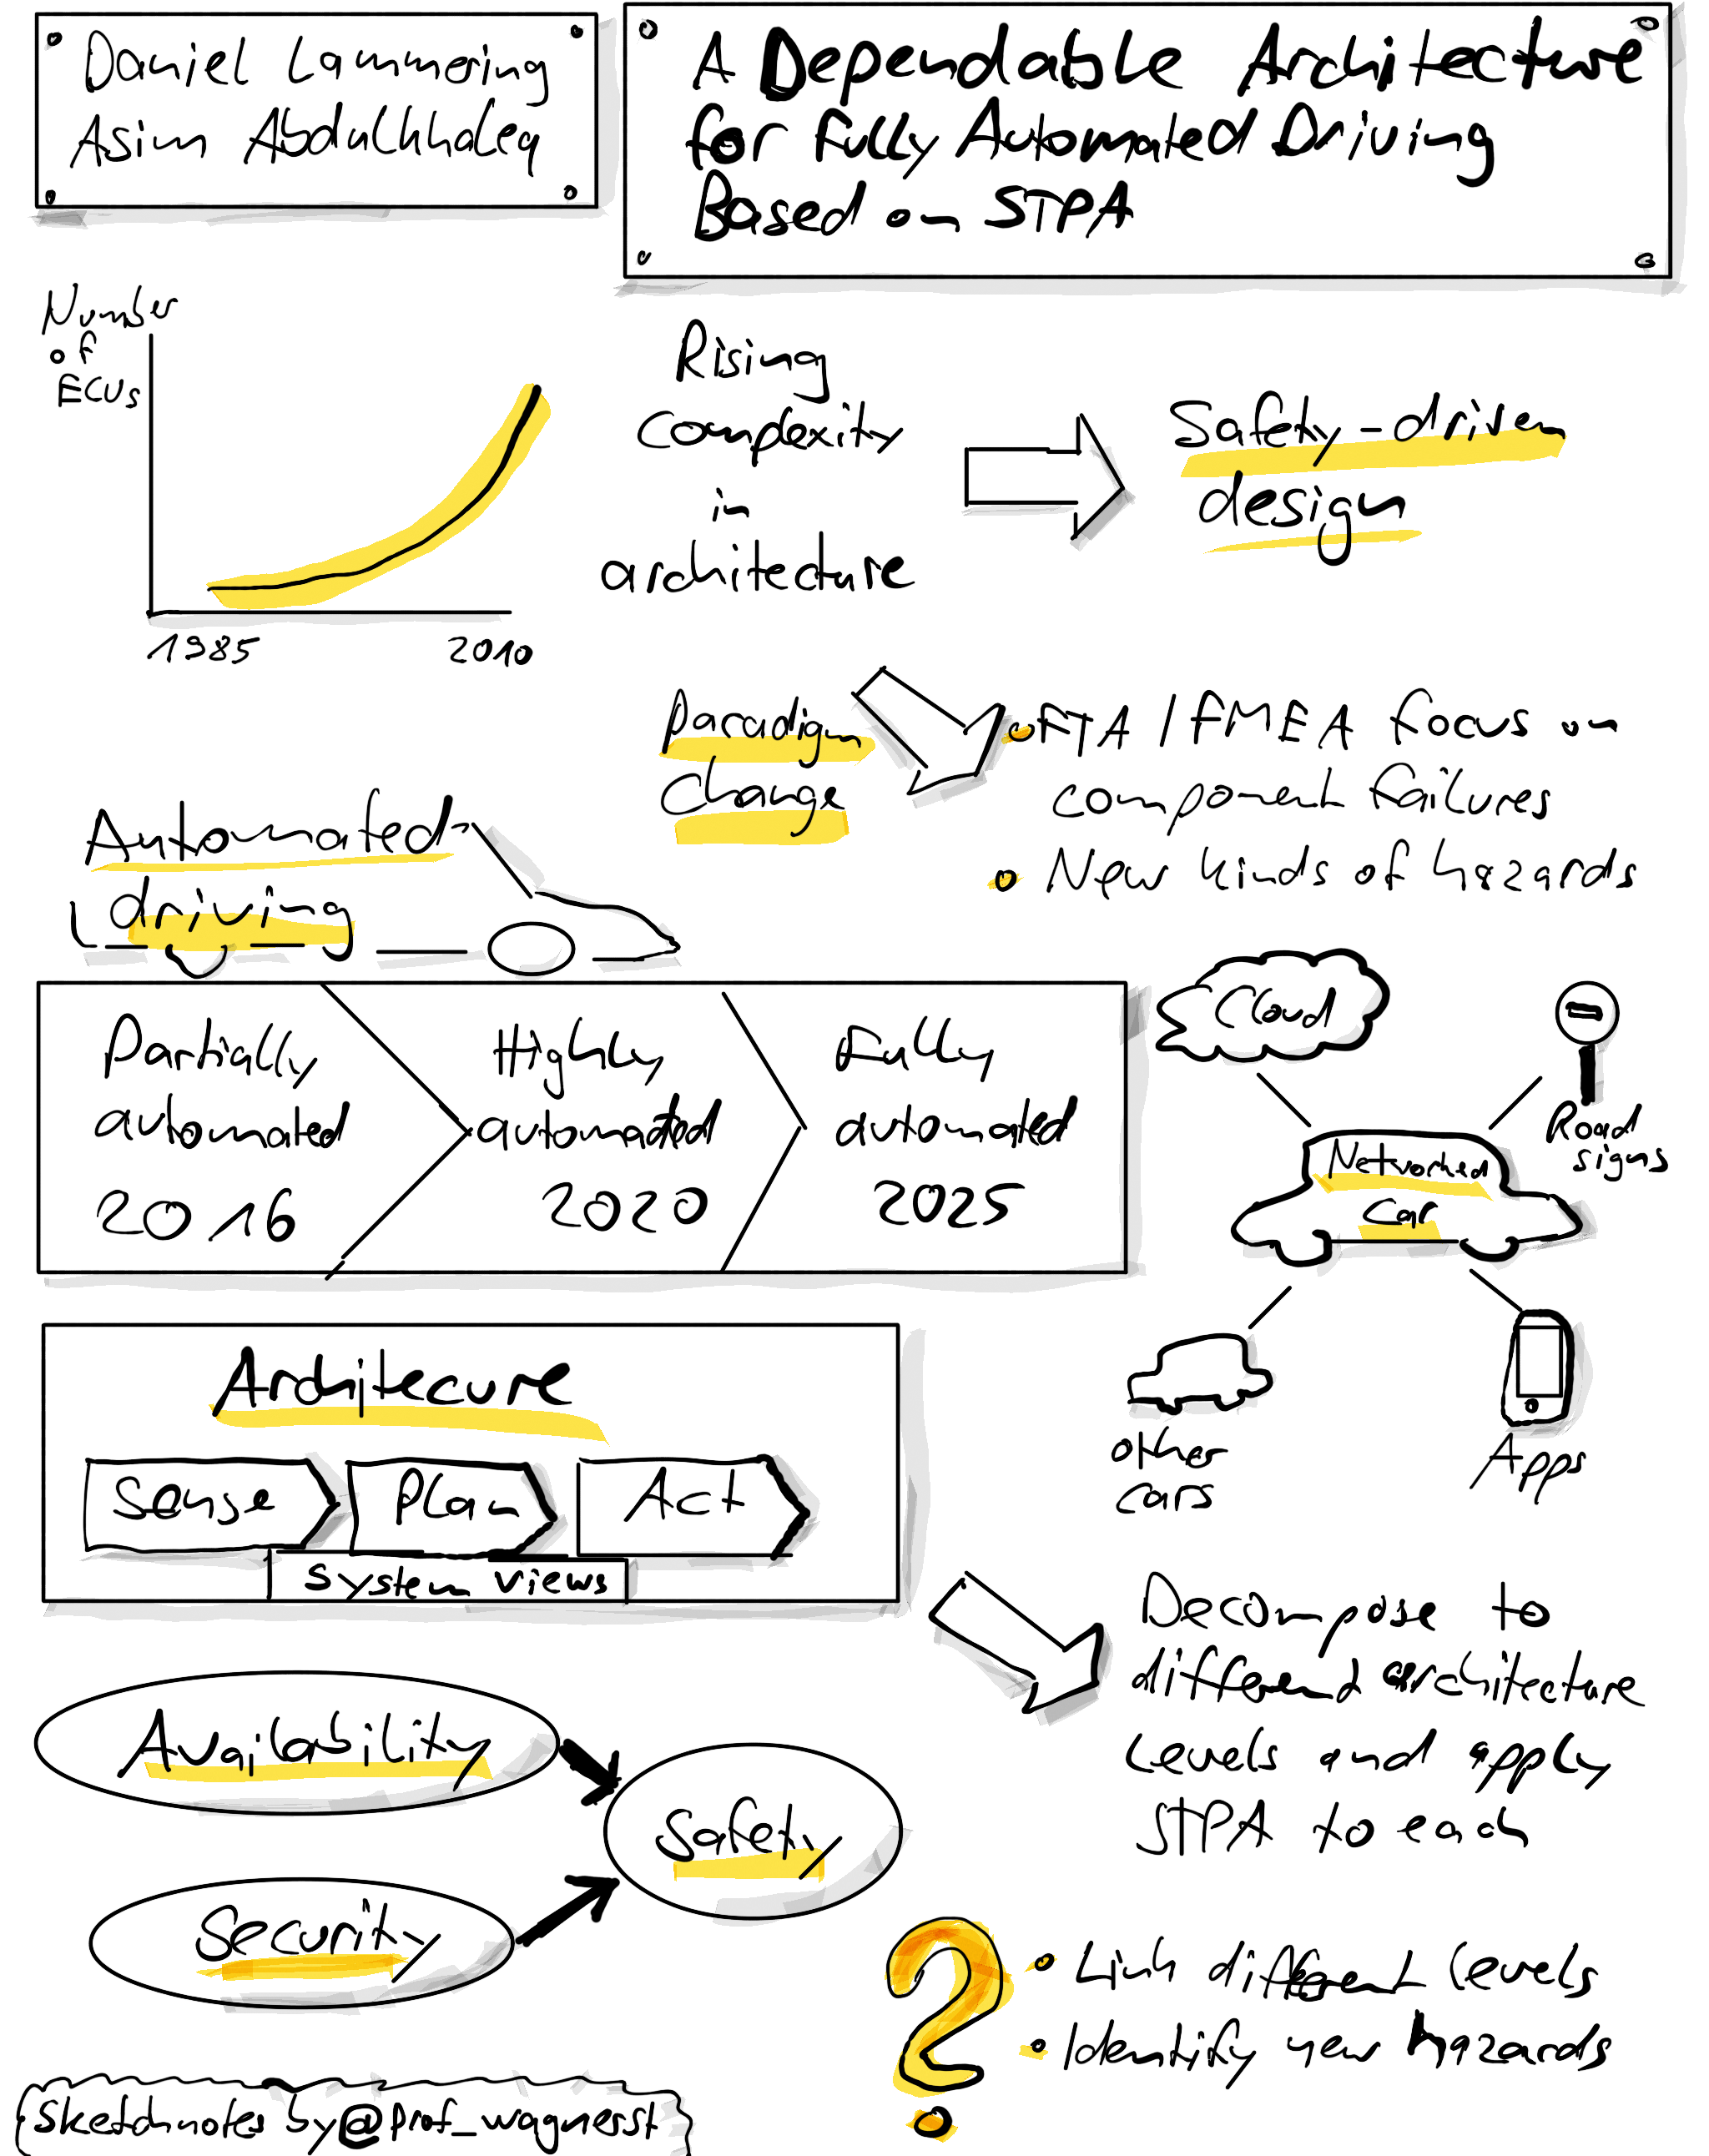 Daniel Lammering
Asim Abdulkhaleq
A Dependable Architecture
for Fully Automated Driving
Based on STPA
Number
of
ECUs
1985
2010
Rising
complexity
in
architecture
Safety-driven
design
paradigm
change
FTA / FMEA focus on
component failures
New kinds of hazards
Automated
driving
Partially
automated
2016
Highly
automated
2020
Fully
automated
2025
Cloud
Road
signs
Networked
Car
other
cars
Apps
Architecure
Sense
Plan
Act
System views
Decompose to
different architecture
levels and apply
STPA to each
Availability
Security
Safety
?
Link different levels
Identify new hazards
Sketchnotes by @prof_wagnerst